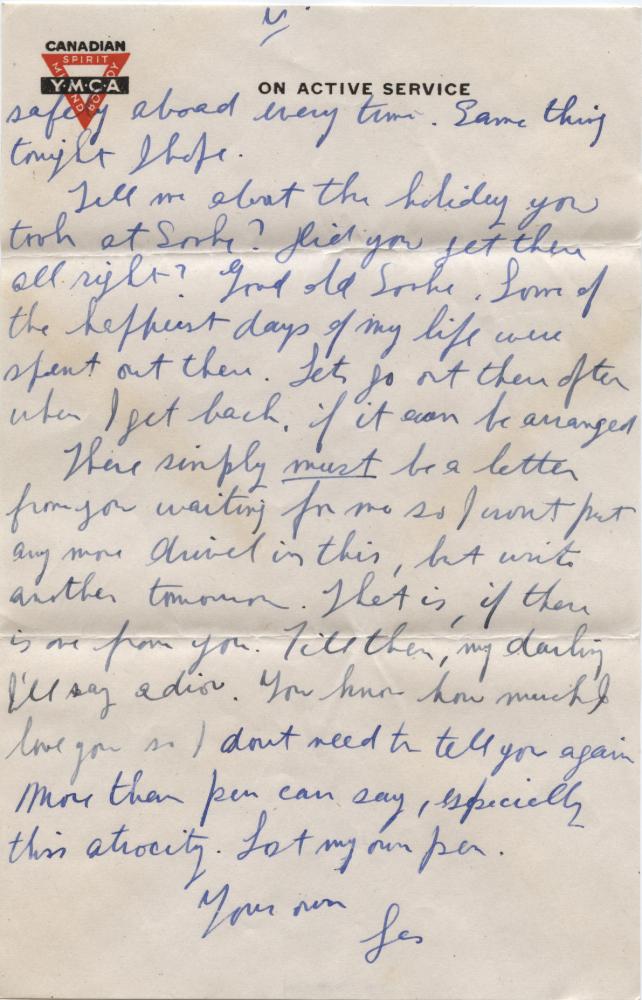 CANADIAN
SPIRIT
MIND BODY
Y·M·C·A
ON ACTIVE SERVICE
safely aboad every time. Same thing
tonight I hope.
Tell me about the holiday you
took at Sooke? Did you get there
all right? Good old Sooke. Some of
the happiest days of my life were
spent out there. Lets go out there often
when I get back, if it can be arranged
There simply must be a letter
from you waiting for me so I wont put
any more drivel in this, but write
another tomorrow. That is, if there
is one from you. Till then, my darling
I'll say adios. You know how much I
love you so I dont need to tell you again
More than pen can say, especially
this atrocity. Lost my own pen.
Your own
Les